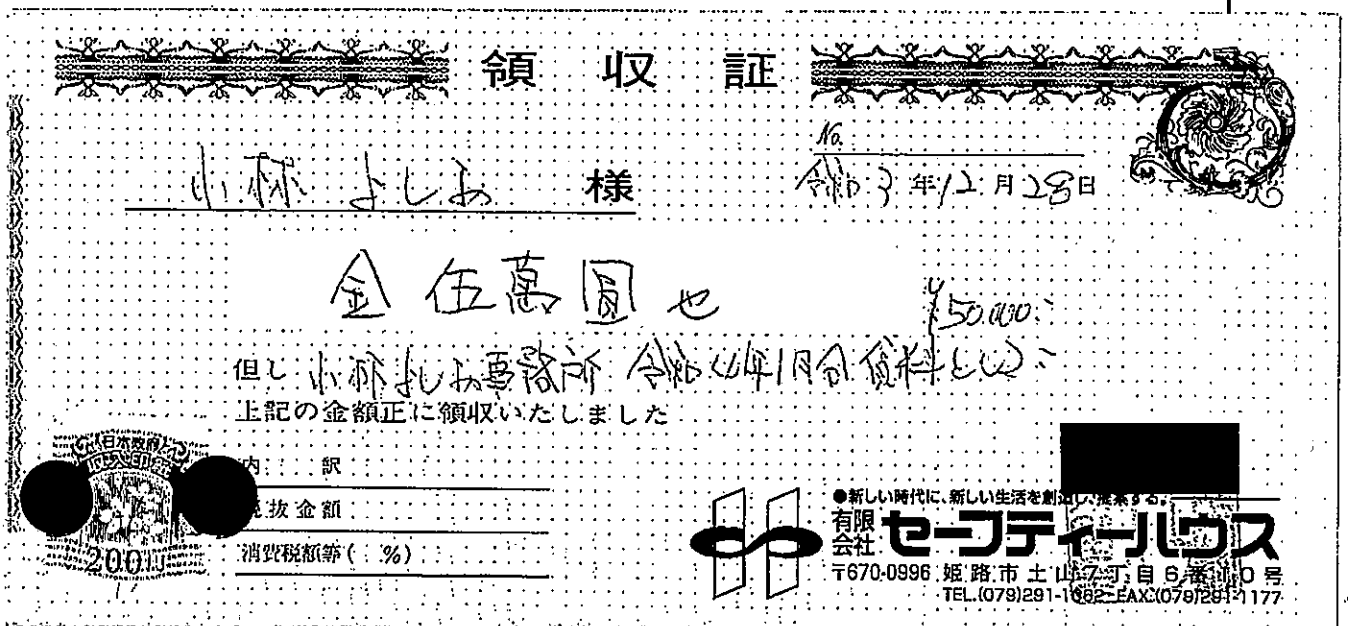 領収証
No.
小林 よしお 様
令和 3 年 12 月 28 日
金 伍萬圓也
¥50,000.-
但し 小林よしお事務所 令和4年1月分 賃料として
上記の金額正に領収いたしました
日本政府
200円
内 訳
税抜金額
消費税額等( %)
●新しい時代に、新しい生活を創造し、提案する。
有限会社 セーフティーハウス
〒670-0996 姫路市土山7丁目6番10号
TEL.(079)291-1 FAX.(079)291-1177